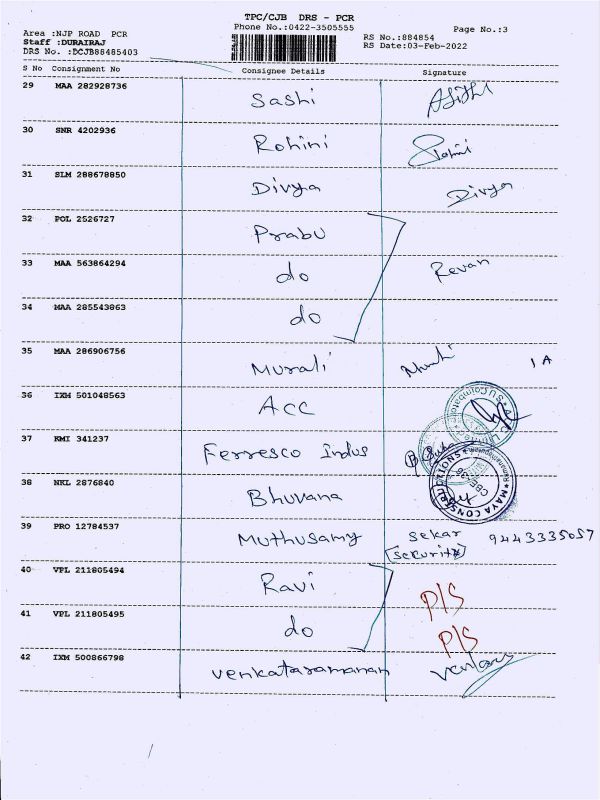 TPC/CJB DRS - PCR
Area :NJP ROAD PCR Phone No.:0422-3505555 Page No.:3
Staff :DURAIRAJ RS No.:884854
DRS No. :DCJB88485403 RS Date:03-Feb-2022
S No Consignment No Consignee Details Signature
29 MAA 282928736 Sashi
30 SNR 4202936 Rohini Rohini
31 SLM 288678850 Divya Divya
32 POL 2526727 Prabu
33 MAA 563864294 do Revan
34 MAA 285543863 do
35 MAA 286906756 Murali 1A
36 IXM 501048563 ACC
37 KMI 341237 Ferresco Indus
38 NKL 2876840 Bhuvana
MAYA CONSTRUCTIONS
CBE
39 PRO 12784537 Muthusamy Sekar 9443335057
[Security]
40 VPL 211805494 Ravi P/S
41 VPL 211805495 do P/S
42 IXM 500866798 Venkataramanan